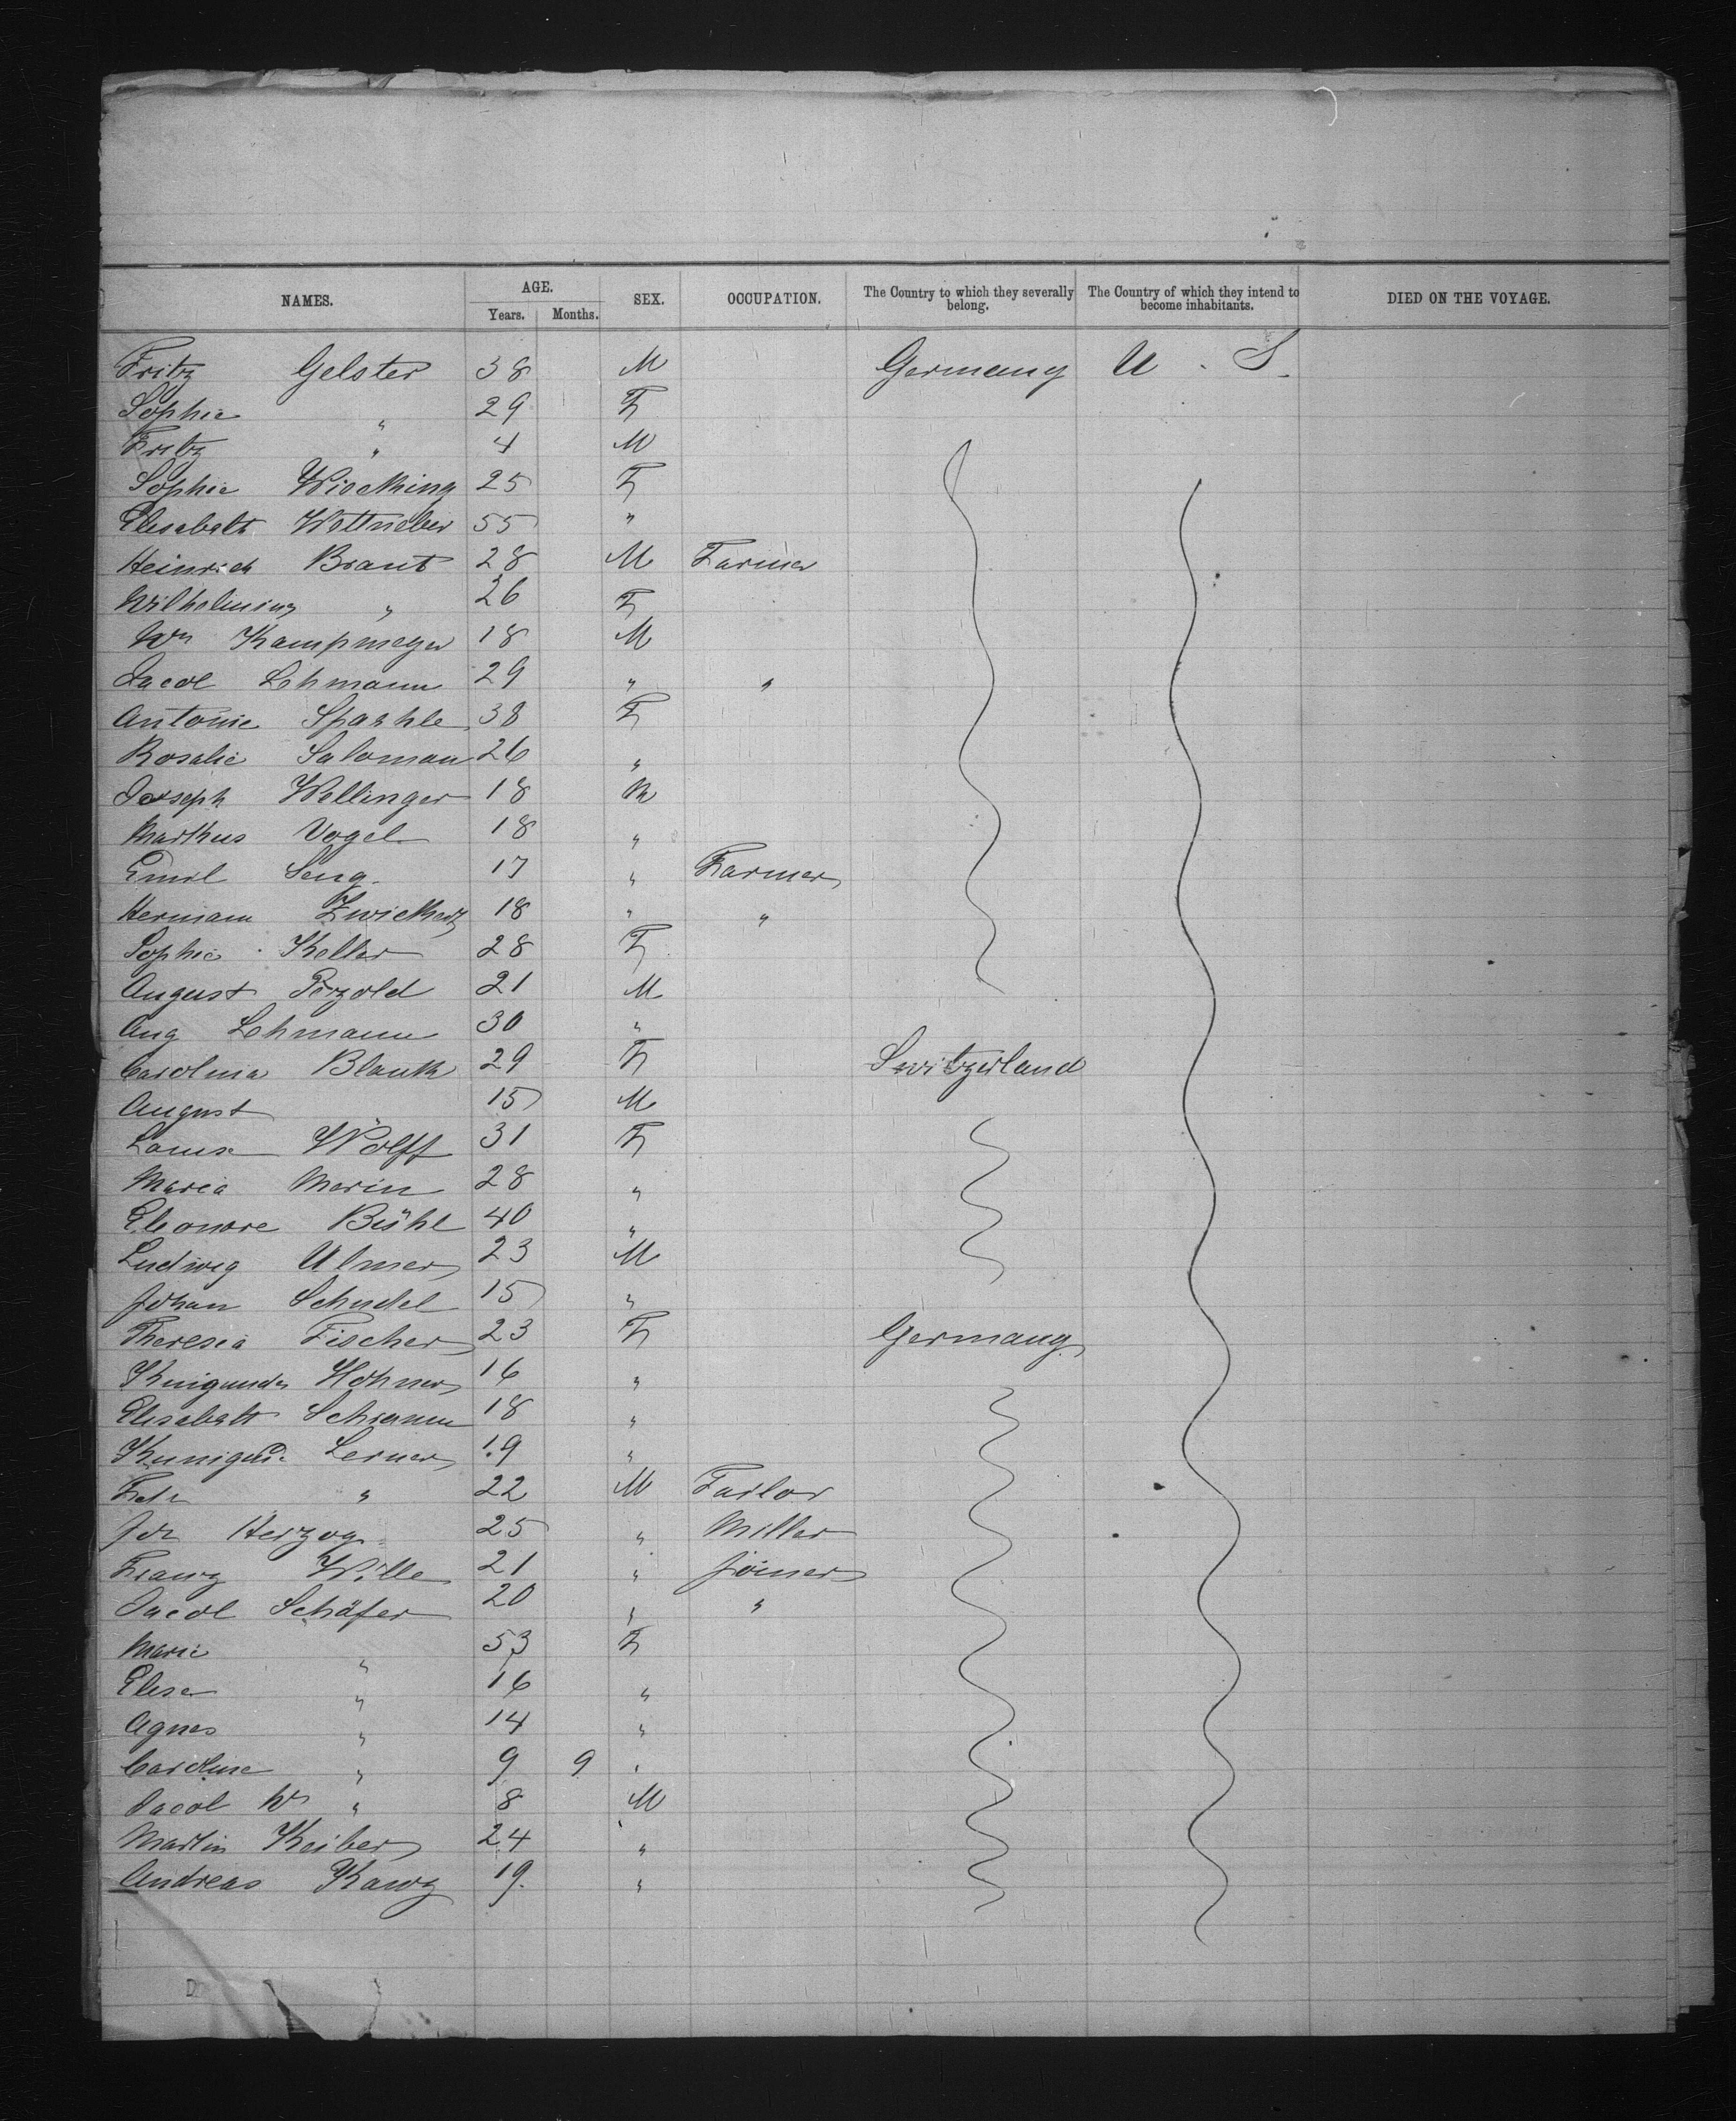 NAMES. AGE. SEX. OCCUPATION. The Country to which they severally belong. The Country of which they intend to become inhabitants. DIED ON THE VOYAGE.
Years. Months.
Fritz Gelster 38 M Germany U. S.
Sophie " 29 F
Fritz " 4 M
Sophie 25 F
Elisabeth 55 "
Heinrich Brant 28 M Farmer
Wilhelmina " 26 F
Wm Kampmeyer 18 M
Jacob Lehmann 29 " "
Antonie 38 F
Rosalie Saloman 26 "
Joseph Wellinger 18 M
Markus Vogel 18 "
Emil Seng 17 " Farmer
Hermann 18 " "
Sophie Keller 28 F
August Perzold 21 M
Aug Lehmann 30 "
Carolina Blank 29 F Switzerland
August 15 M
Louise Wolff 31 F
Maria Merin 28 "
Eleonore Bühl 40 "
Ludwig Ulmer 23 M
Johan Schudel 15 "
Theresia Fischer 23 F Germany
Kunigunda Höhner 16 "
Elisabeth Schramm 18 "
Kunigde Lerner 19 "
" 22 M Tailor
Joh Herzog 25 " Miller
Franz Wille 21 " Joiner
Jacob Schäfer 20 " "
Marie " 53 F
Elise " 16 "
Agnes " 14 "
Caroline " 9 9 "
Jacob Wm " 8 M
Martin Keiber 24 "
Andreas Kanz 19 "